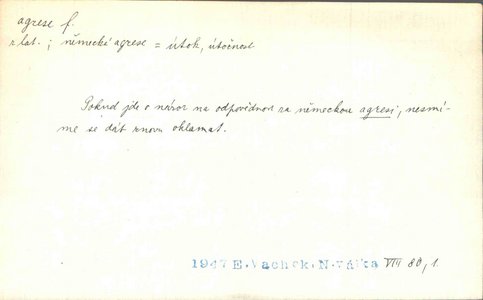 agrese f.
z lat. ; německé agrese = útok, útočnost
Pokud jde o názor na odpovědnost za německou agresi, nesmí-
me se dát znovu oklamat.
1947 E. Vachek. N. válka VIII 80, 1.